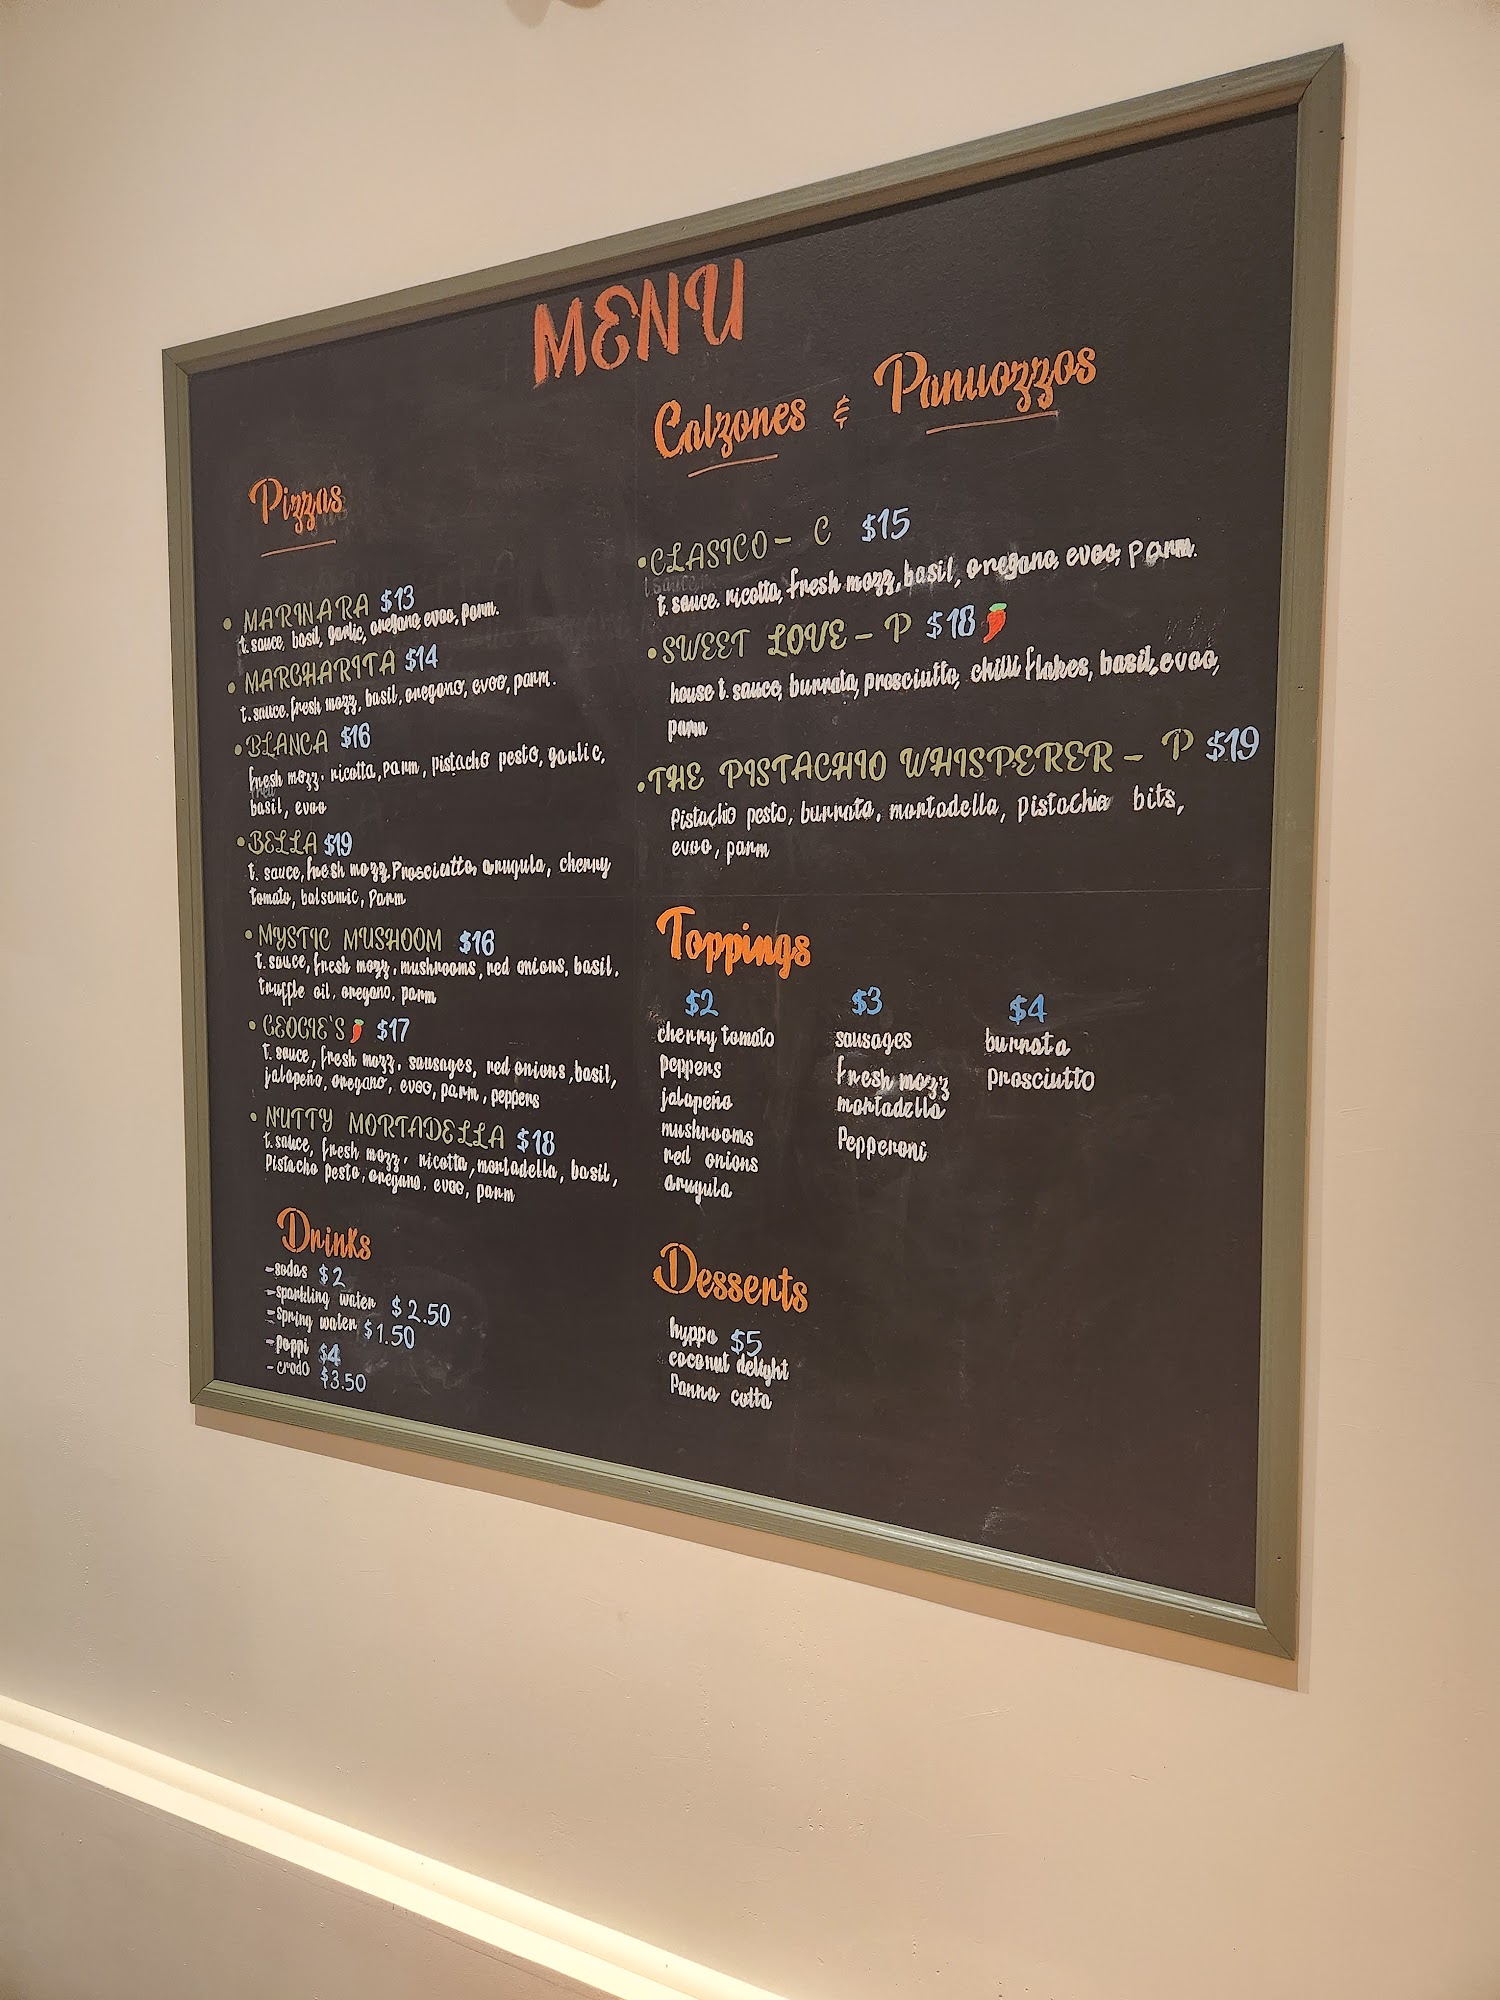 MENU
Pizzas
• MARINARA $13
t. sauce, basil, garlic, oregano, evoo, parm.
• MARGHARITA $14
t. sauce, fresh mozz, basil, oregano, evoo, parm.
• BLANCA $16
fresh mozz, ricotta, parm, pistacho pesto, garlic,
basil, evoo
• BELLA $19
t. sauce, fresh mozz, Prosciutto, arugula, cherry
tomato, balsamic, Parm
• MYSTIC MUSHOOM $16
t. sauce, fresh mozz, mushrooms, red onions, basil,
truffle oil, oregano, parm
• GEOGIE'S $17
t. sauce, fresh mozz, sausages, red onions, basil,
jalapeño, oregano, evoo, parm, peppers
• NUTTY MORTADELLA $18
t. sauce, fresh mozz, ricotta, mortadella, basil,
Pistacho pesto, oregano, evoo, parm
Drinks
-sodas $2
-sparkling water $2.50
-spring water $1.50
-poppi $4
-crodo $3.50
Calzones & Panuozzos
• CLASICO - C $15
t. sauce. ricotta, fresh mozz, basil, oregano, evoo, parm.
• SWEET LOVE - P $18
house t. sauce, burrata, prosciutto, chilli flakes, basil, evoo,
parm
• THE PISTACHIO WHISPERER - P $19
Pistachio pesto, burrata, mortadella, pistachio bits,
evoo, parm
Toppings
$2
cherry tomato
peppers
jalapeño
mushrooms
red onions
arugula
$3
sausages
fresh mozz
mortadella
Pepperoni
$4
burrata
prosciutto
Desserts
hyppo $5
coconut delight
Panna cotta